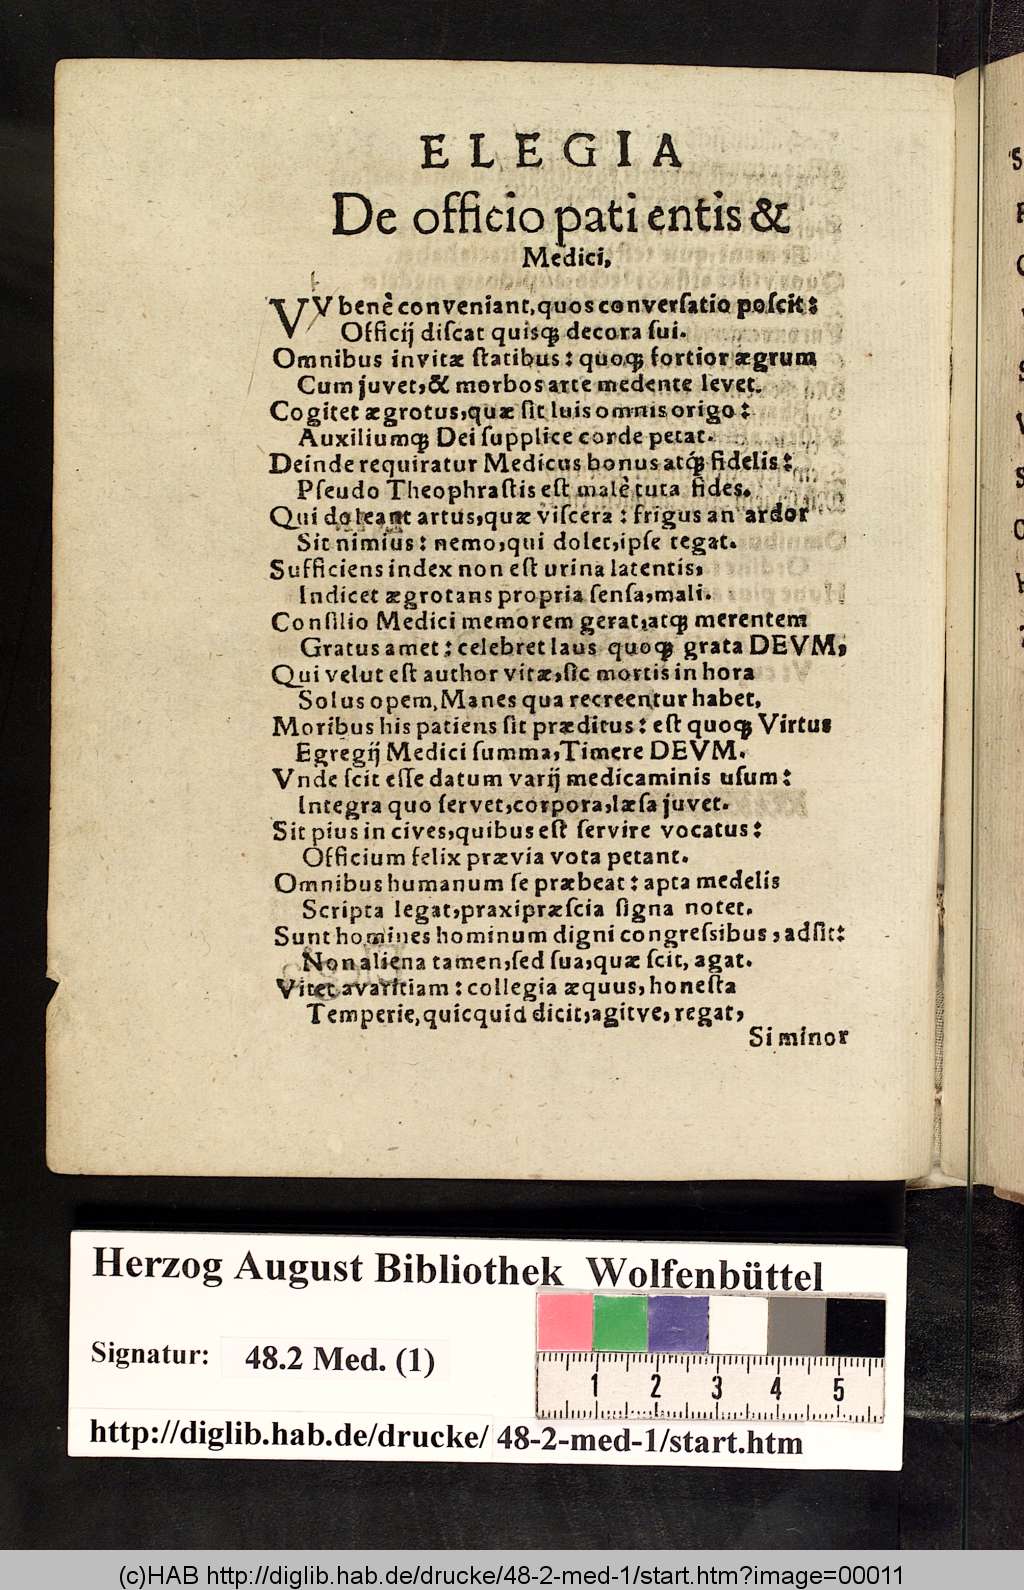 ELEGIA
De officio pati entis &
Medici,
VV benè conveniant, quos conversatio poscit:
Officij discat quisq; decora sui.
Omnibus invitæ statibus: quoq; fortior ægrum
Cum juvet, & morbos arte medente levet.
Cogitet ægrotus, quæ sit luis omnis origo:
Auxiliumq; Dei supplice corde petat.
Deinde requiratur Medicus bonus atq; fidelis:
Pseudo Theophrastis est malè tuta fides.
Qui doleant artus, quæ viscera: frigus an ardor
Sit nimius: nemo, qui dolet, ipse tegat.
Sufficiens index non est urina latentis,
Indicet ægrotans propria sensa, mali.
Consilio Medici memorem gerat, atq; merentem
Gratus amet: celebret laus quoq; grata DEVM,
Qui velut est author vitæ, sic mortis in hora
Solus opem, Manes qua recreentur habet,
Moribus his patiens sit præditus: est quoq; Virtus
Egregij Medici summa, Timere DEVM.
Vnde scit esse datum varij medicaminis usum:
Integra quo servet, corpora, læsa juvet.
Sit pius in cives, quibus est servire vocatus:
Officium felix prævia vota petant.
Omnibus humanum se præbeat: apta medelis
Scripta legat, praxi præscia signa notet.
Sunt homines hominum digni congressibus, adsit:
Non aliena tamen, sed sua, quæ scit, agat.
Vitet avaritiam: collegia æquus, honesta
Temperie, quicquid dicit, agitve, regat,
Si minor
Herzog August Bibliothek Wolfenbüttel
Signatur: 48.2 Med. (1)
1 2 3 4 5
http://diglib.hab.de/drucke/ 48-2-med-1/start.htm
(c)HAB http://diglib.hab.de/drucke/48-2-med-1/start.htm?image=00011